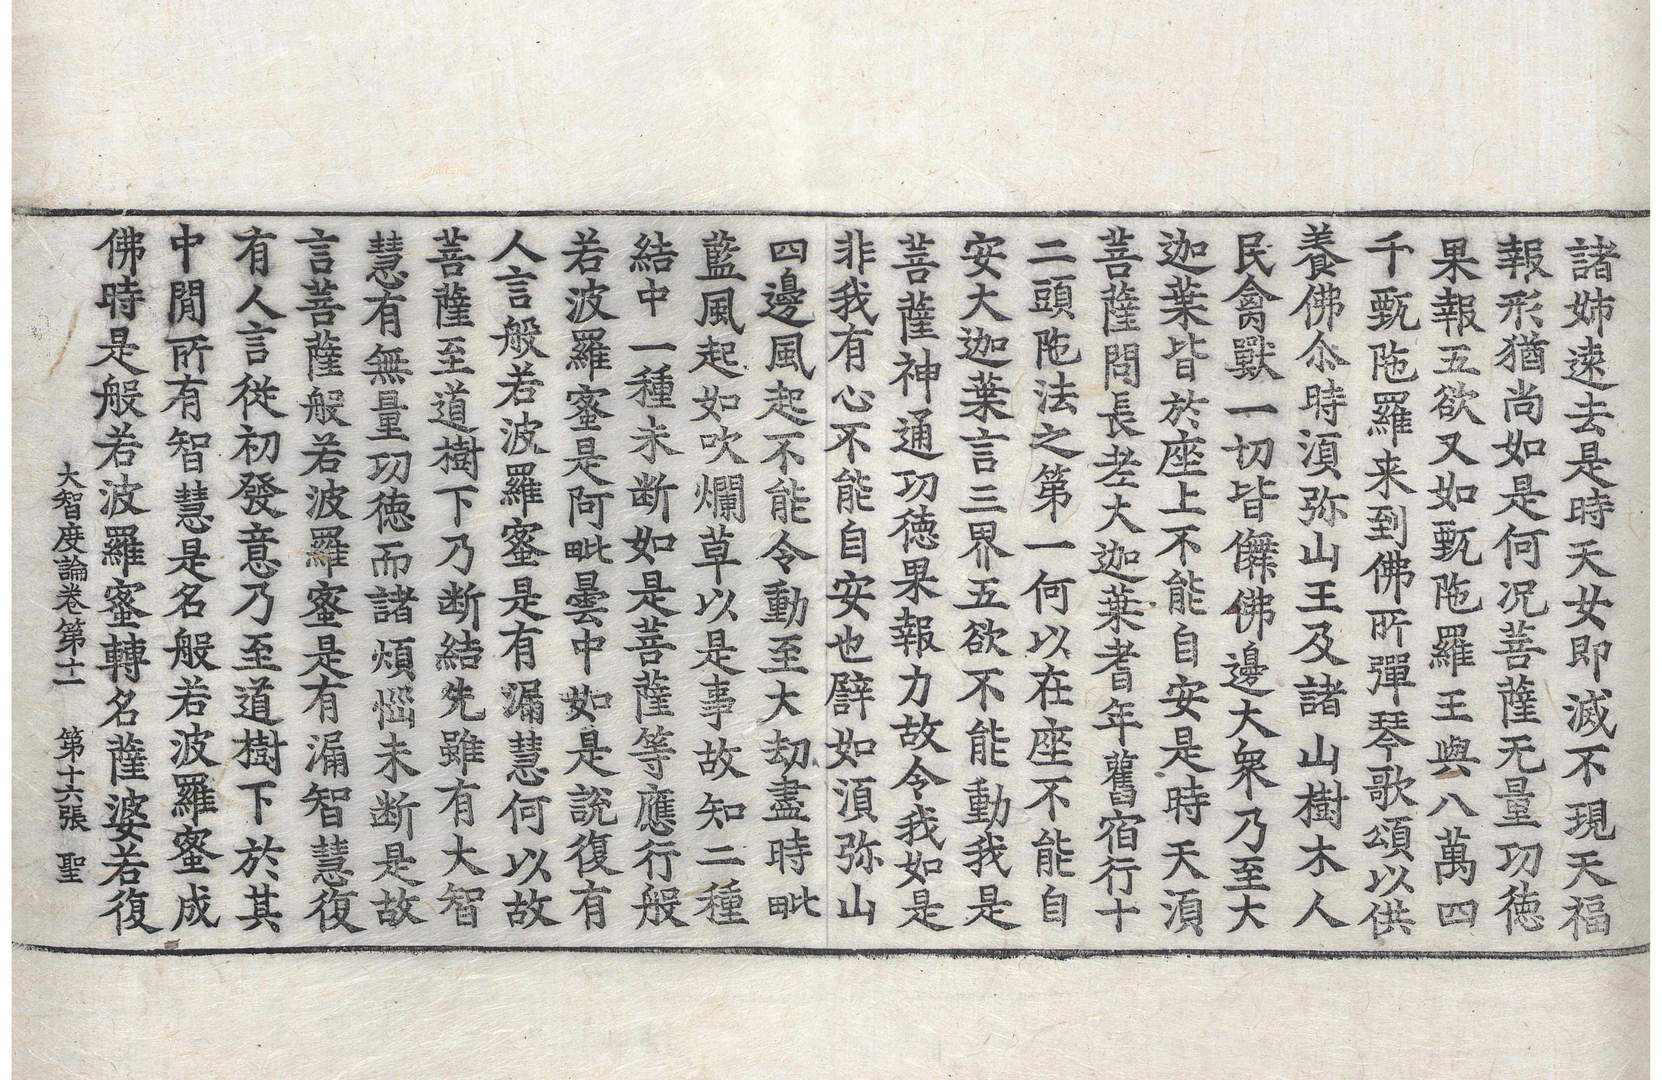 諸姉遠去是時天女即滅不現天福
報形猶尚如是何況菩薩无量功德
果報五欲又如甄陁羅王與八萬四
千甄陁羅来到佛所彈琴歌頌以供
養佛尒時湏弥山王及諸山樹木人
民禽獸一切皆儛佛邊大衆乃至大
迦葉皆於座上不能自安是時天湏
菩薩問長老大迦葉耆年舊宿行十
二頭陁法之第一何以在座不能自
安大迦葉言三界五欲不能動我是
菩薩神通功德果報力故令我如是
非我有心不能自安也譬如湏弥山
四邊風起不能令動至大劫盡時毗
藍風起如吹爛草以是事故知二種
結中一種未断如是菩薩等應行般
若波羅蜜是阿毗曇中如是說復有
人言般若波羅蜜是有漏慧何以故
菩薩至道樹下乃断結先雖有大智
慧有無量功德而諸煩惱未断是故
言菩薩般若波羅蜜是有漏智慧復
有人言從初發意乃至道樹下於其
中閒所有智慧是名般若波羅蜜成
佛時是般若波羅蜜轉名薩婆若復
大智度論卷第十一 第十六張 聖